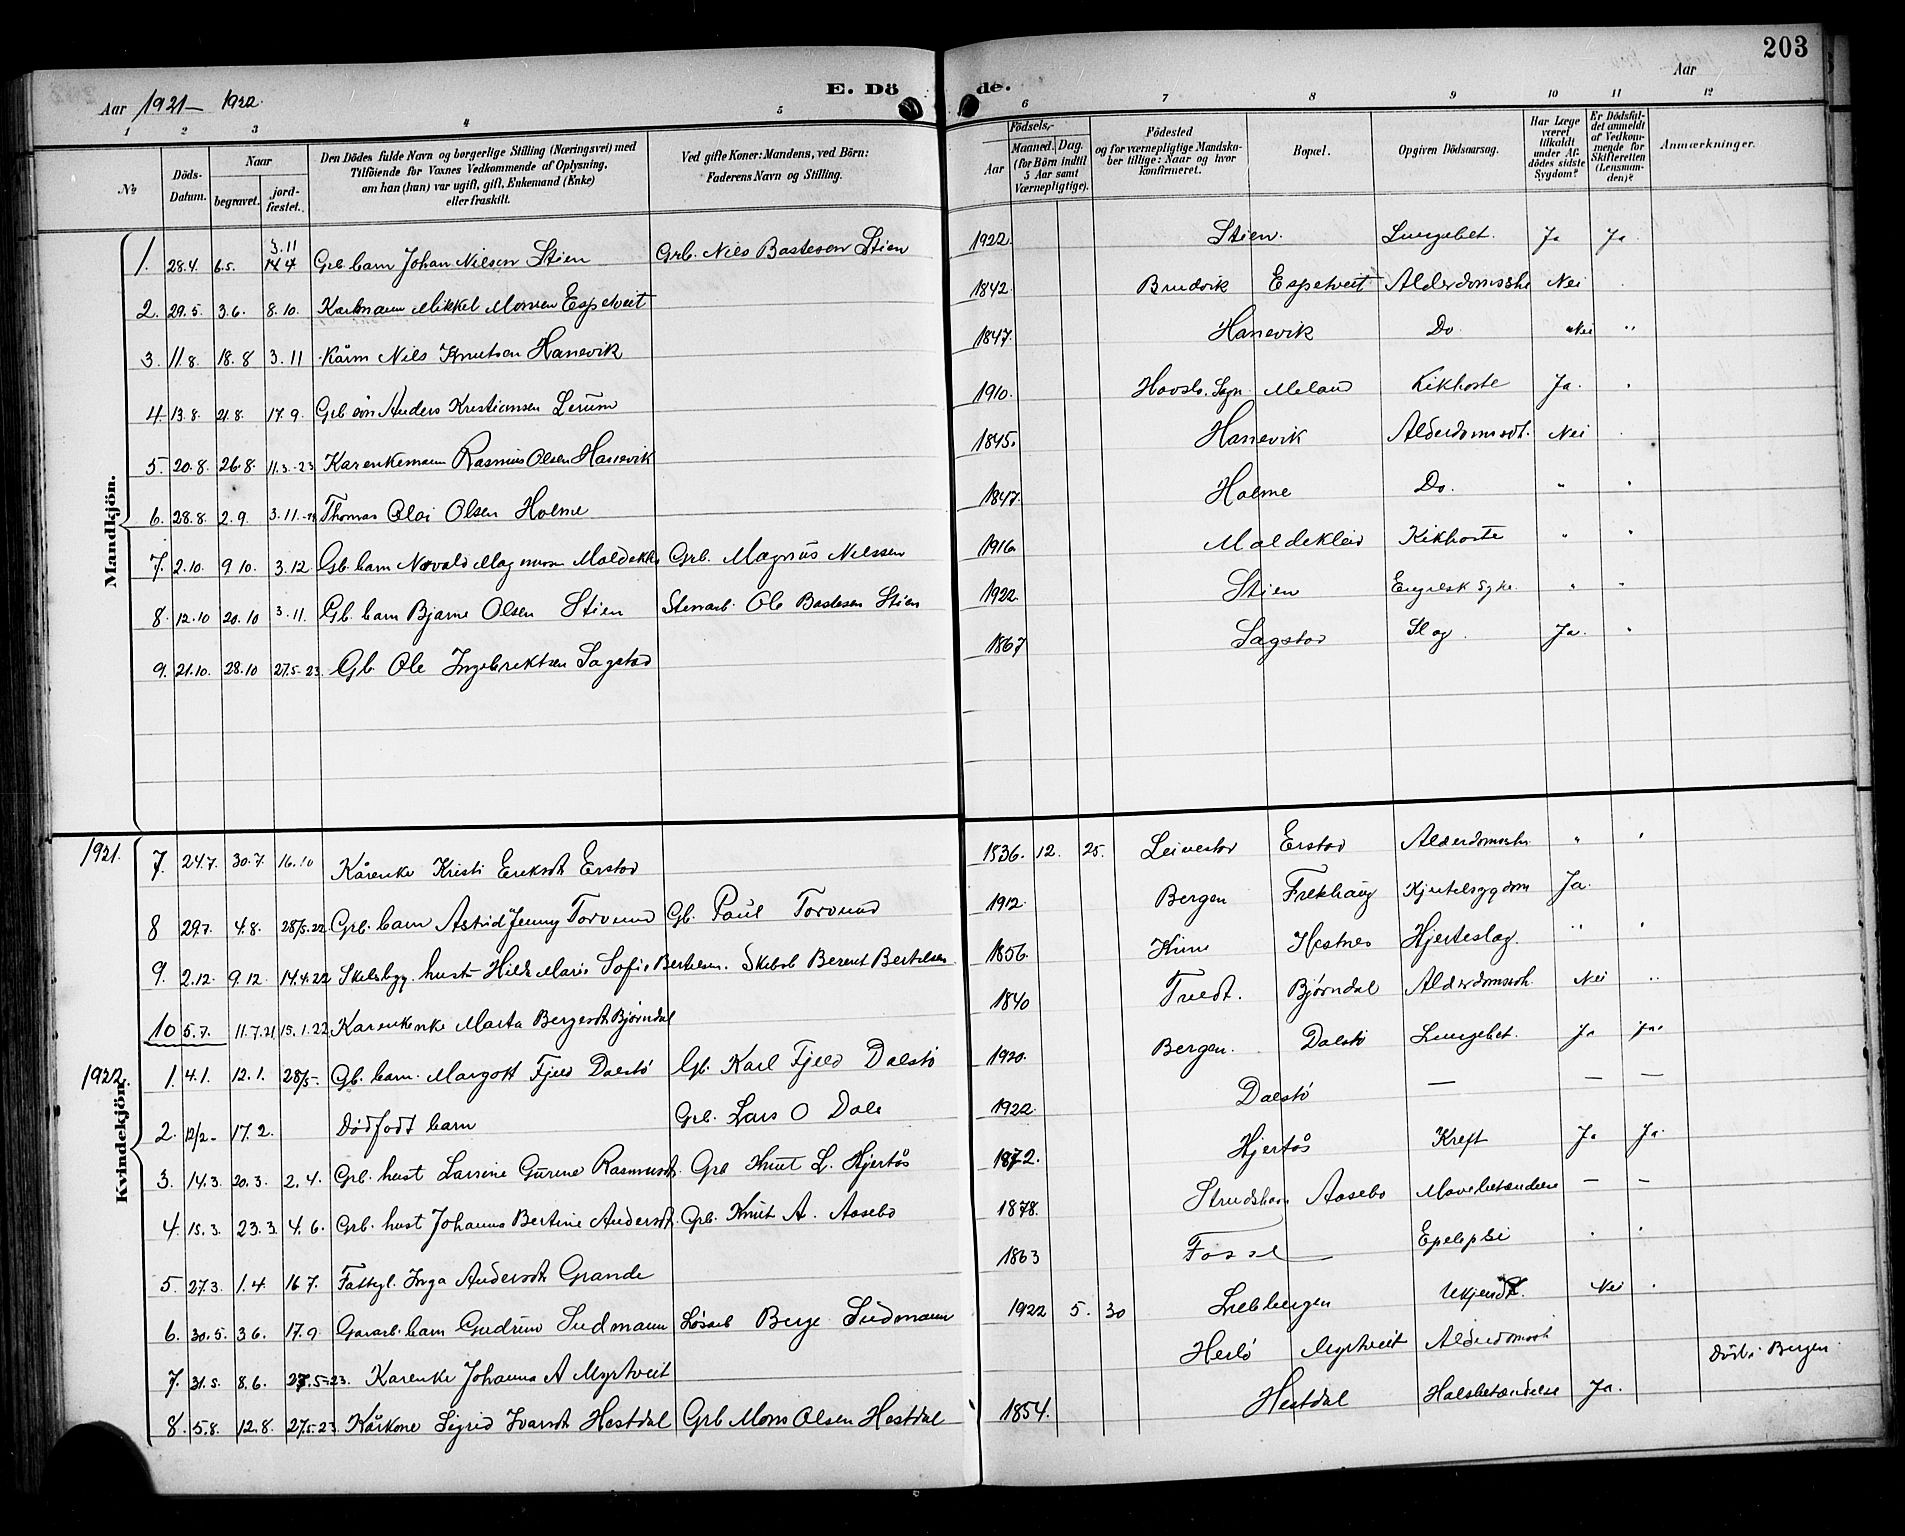 203
Aar 1921-1922.
E. Dö de.
Aar
1 2 3 4 5 6 7 8 9 10 11 12
No
Döds-Datum.
Naar
begravet.
jord-fæstet.
Den Dödes fulde Navn og borgerlige Stilling (Næringsvei) med
Tilföiende for Voxnes Vedkommende af Oplysning,
om han (hun) var ugift, gift, Enkemand (Enke)
eller fraskilt.
Ved gifte Koner: Mandens, ved Börn:
Faderens Navn og Stilling.
Födsels-
Aar
Maaned. Dag.
(for Börn indtil
5 Aar samt
Værnepligtige).
Födested
og for værnepligtige Mandska-
ber tillige: Naar og hvor
konfirmeret.
Bopæl.
Opgiven Dödsaarsag.
Har Læge
været
tilkaldt
under Af-
dödes sidste
Sygdom?
Er Dödsfal-
det anmeldt
af Vedkom-
mende for
Skifteretten
(Lensman-
den)?
Anmærkninger.
Mandkjön.
1. 28.4. 6.5. 3.11 Grb. barn Johan Nilsen Stien Grb. Nils Bastesen Stien 1922 Stien. Lungebet. Ja Ja
2. 29.5. 3.6. 8.10. Mikkel Monsen Espetveit 1842 Bruvik Espetveit Nei
3. 11.8. 18.8 3.11 Kårm Nils Knutsen Hanevik 1847. Hanevik Do. Nei "
4. 13.8. 21.8. 17.9. Grb søn Anders Kristiansen Lerum 1910. Hovslo. Sogn Meland Kikhoste Ja.
5. 20.8. 26.8. 11.3.-23 Karenkemann Rasmus Olsen Hanevik 1845. Hanevik Alderdomssvh. Nei
6. 28.8. 2.9. 3.11. Thomas Olai Olsen Holme 1847. Holme Do. "
7. 2.10. 9.10. 3.12 Gb. barn Norvald Magnussen Grb. Magnus Nilssen 1916 Maldekleiv Kikhoste "
8. 12.10 20.10 3.11. Gb. barn Bjarne Olsen Stien Stenarb. Ole Bastesen Stien 1922. Stien Engelsk Syke. "
9. 21.10. 28.10 27.5-23. Gb Ole Ingebrektsen Sagstad 1867 Sagstad Slag. Ja.
1921.
7. 24.7. 30.7. 16.10 Kårenke Kristi Eriksdt Erstad 1836. 12. 25. Leivestad Erstad "
8 29.7. 4.8. 28/5.22 Grb. barn Astrid Jenny Torvund Gb. Paul Torvund 1912. Bergen Frekhaug Hjertesygdom Ja.
9. 2.12. 9.12. 14.4.22 Skibsbyg. hust Marie Sofie Bertelsen. Skibsb Berent Bertelsen 1856. Hestnes Hjerteslag. "
10 5.7. 11.7.21 15.1.22 Karenkenke Marta Bergesdt Bjørndal 1840 Tvedt. Bjørndal Alderdomssvh. Nei "
1922.
Kvindekjön.
1. 4.1. 12.1. 28/5-. Gb. barn Margott Fjeld Dalstø Gb. Karl Fjeld Dalstø 1920. Bergen. Dalstø Lungebet. Ja Ja.
2. 12/2- 17.2. Dødfødt barn Grb. Lars O Dale 1922. Dalstø — — —
3. 14.3. 20.3. 2.4. Grb. hust Larsine Gurine Rasmusdt. Grb Knut L. Hjertås 1872. Hjertås Kreft Ja Ja.
4. 15.3. 23.3. 4.6. Grb. hust Johanna Bertine Andersdt. Grb. Knut A. Aasebø 1878. Strudshavn Aasebø Mavebetændelse — —
5. 27.3. 1.4. 16.7. Fattigl. Inga Andersdt. Grande 1863 Fosse — Epelepsi
6. 30.5. 3.6. 17.9. barn Gudrun Sudmann Løsarb Berge Sudmann 1922 5. 30 Ukjendt. Nei
7. 31.5. 8.6. 27.5-23. Karenke Johanna A Myrtveit Herlø Myrtveit Alderdomssvh Død i Bergen.
8. 5.8. 12.8. 27.5.-23. Kårkone Sigrid Ivarsdt Hestdal Grb Mons Olsen Hestdal 1854. Hestdal Halsbetændelse Ja.